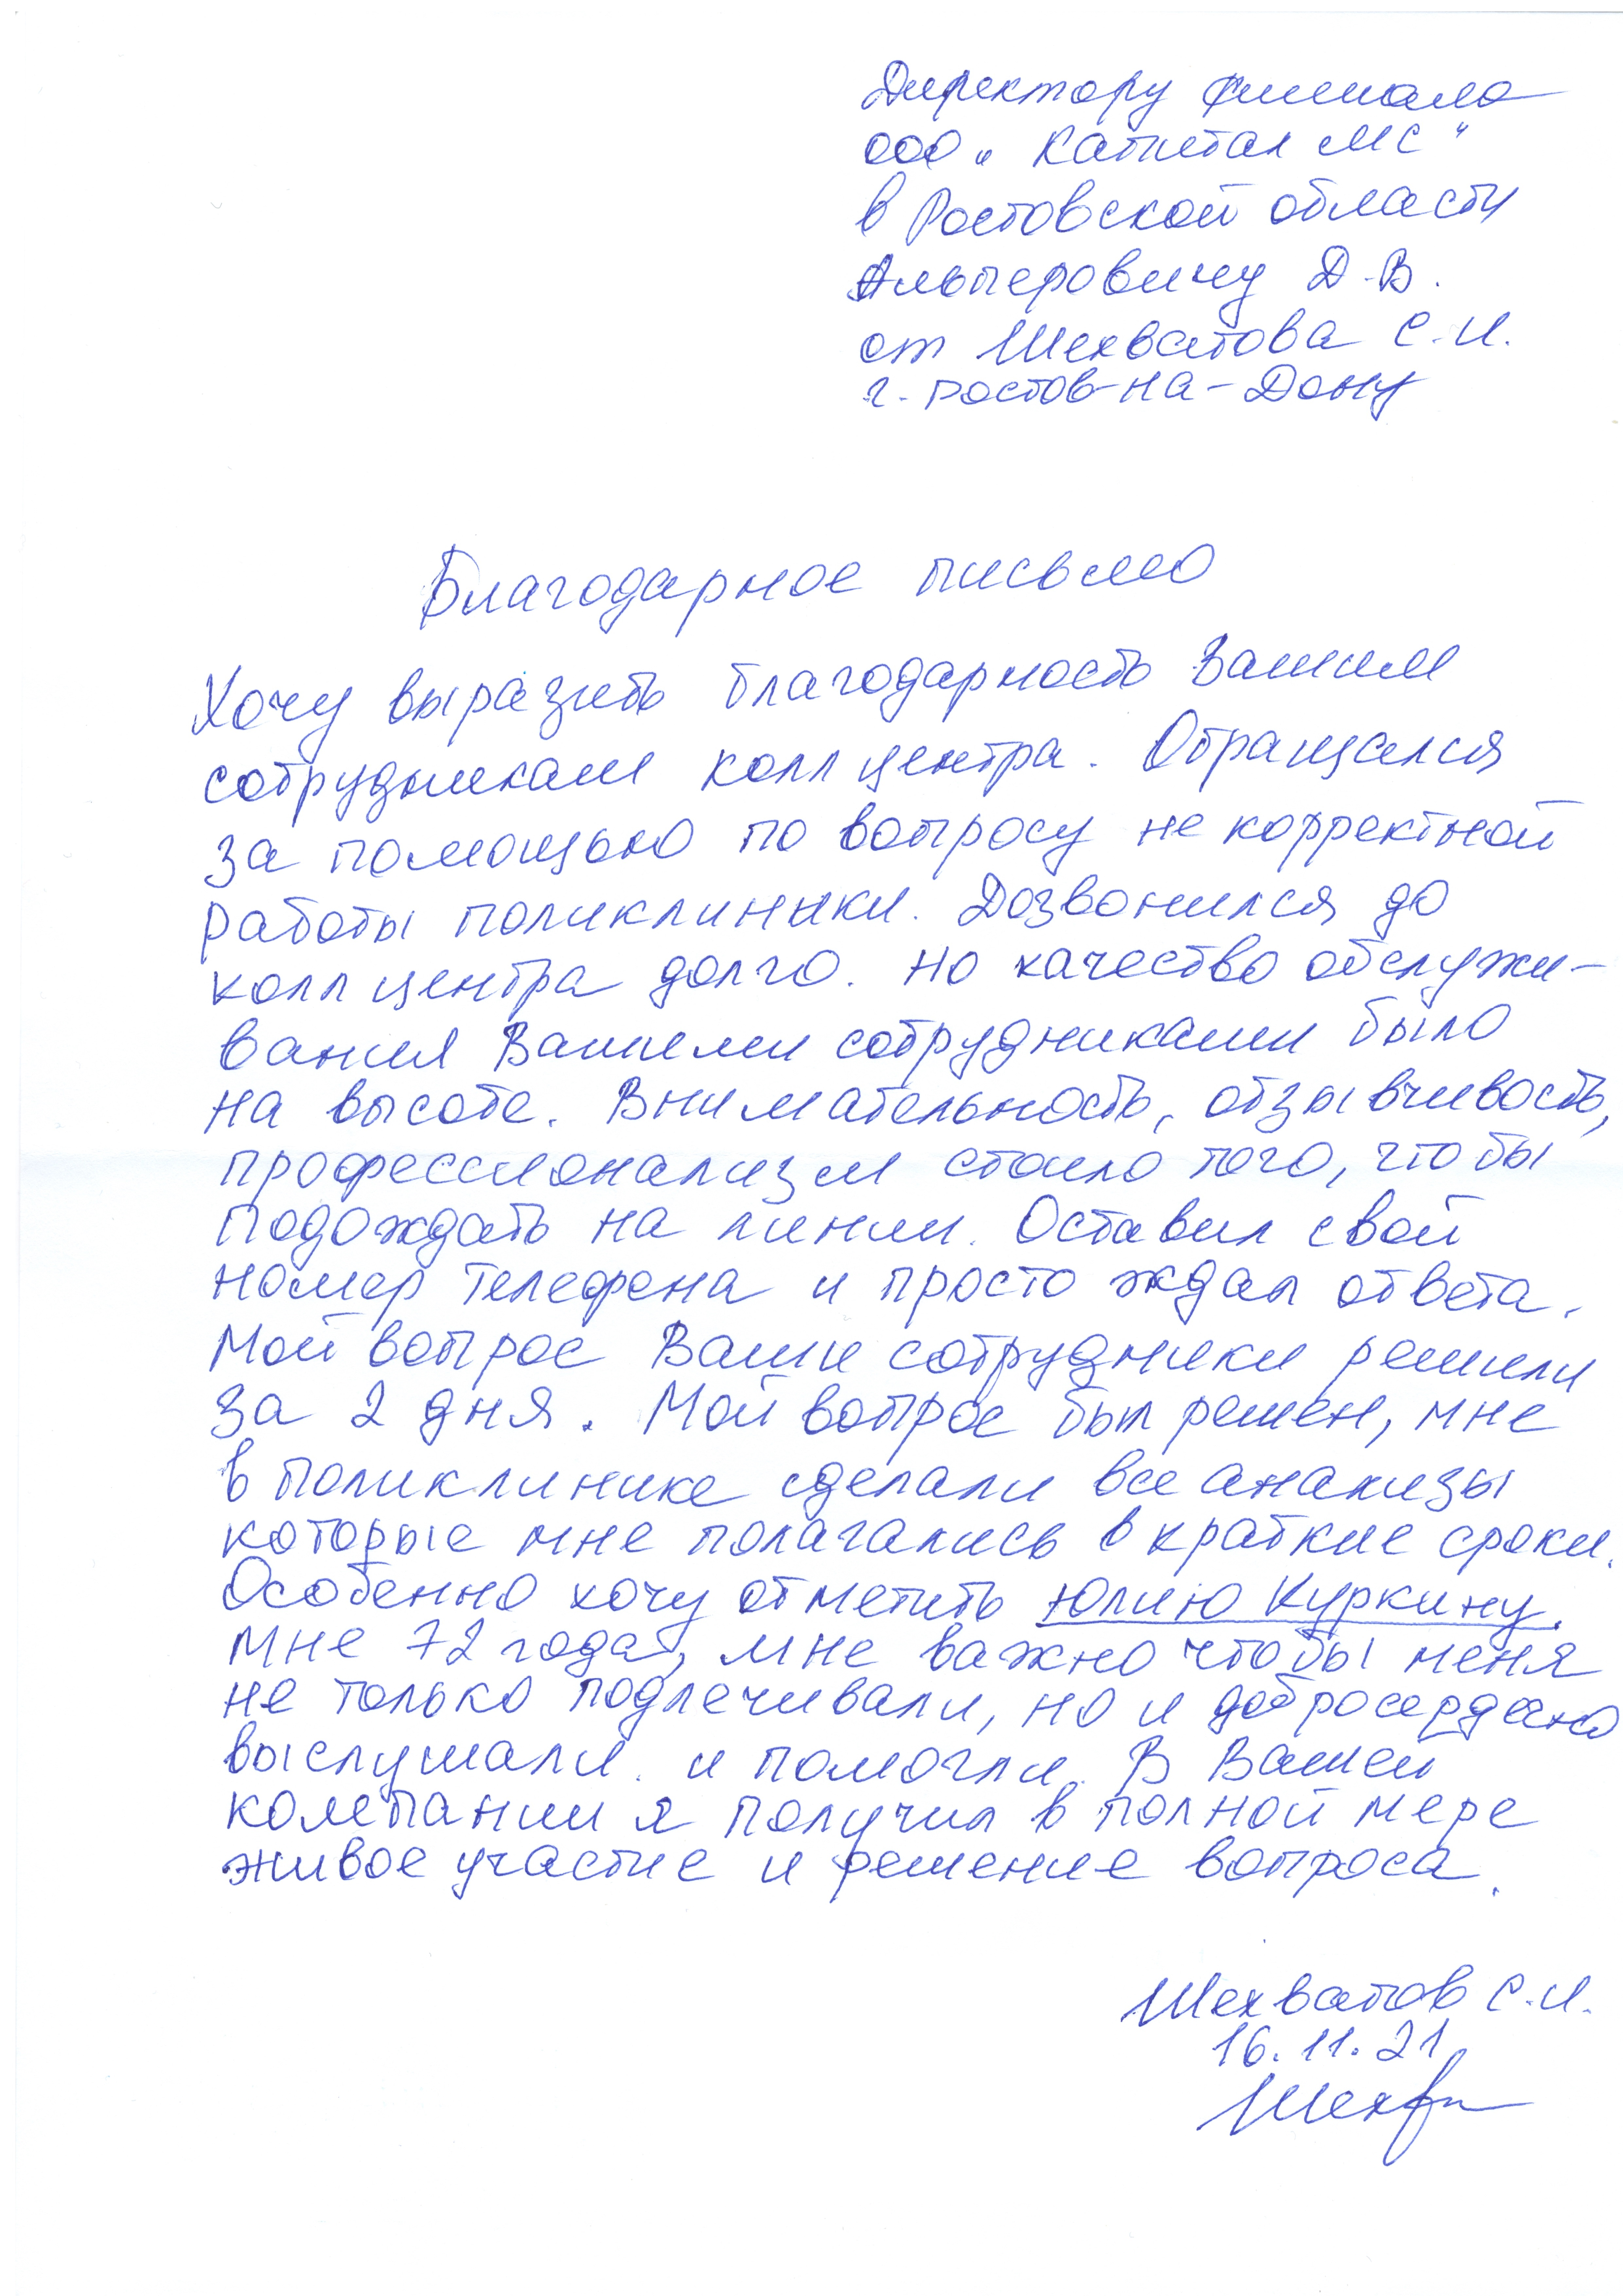 Директору филиала
ООО „Капитал МС"
в Ростовской области
Альперовичу Д.В.
от Шехватова С.И.
г. Ростов-на-Дону
Благодарное письмо
Хочу выразить благодарность Вашим
сотрудникам колл центра. Обращался
за помощью по вопросу не корректной
работы поликлиники. Дозвонился до
колл центра долго. Но качество обслужи-
вания Вашими сотрудниками было
на высоте. Внимательность, отзывчивость,
профессионализм стоило того, чтобы
подождать на линии. Оставил свой
номер телефона и просто ждал ответа.
Мой вопрос Ваши сотрудники решили
за 2 дня. Мой вопрос был решен, мне
в поликлинике сделали все анализы
которые мне полагались в краткие сроки.
Особенно хочу отметить Юлию Куркину.
Мне 72 года, мне важно чтобы меня
не только подлечивали, но и добросердечно
выслушали и помогли. В Вашей
компании я получил в полной мере
живое участие и решение вопроса.
Шехватов С.И.
16.11.21